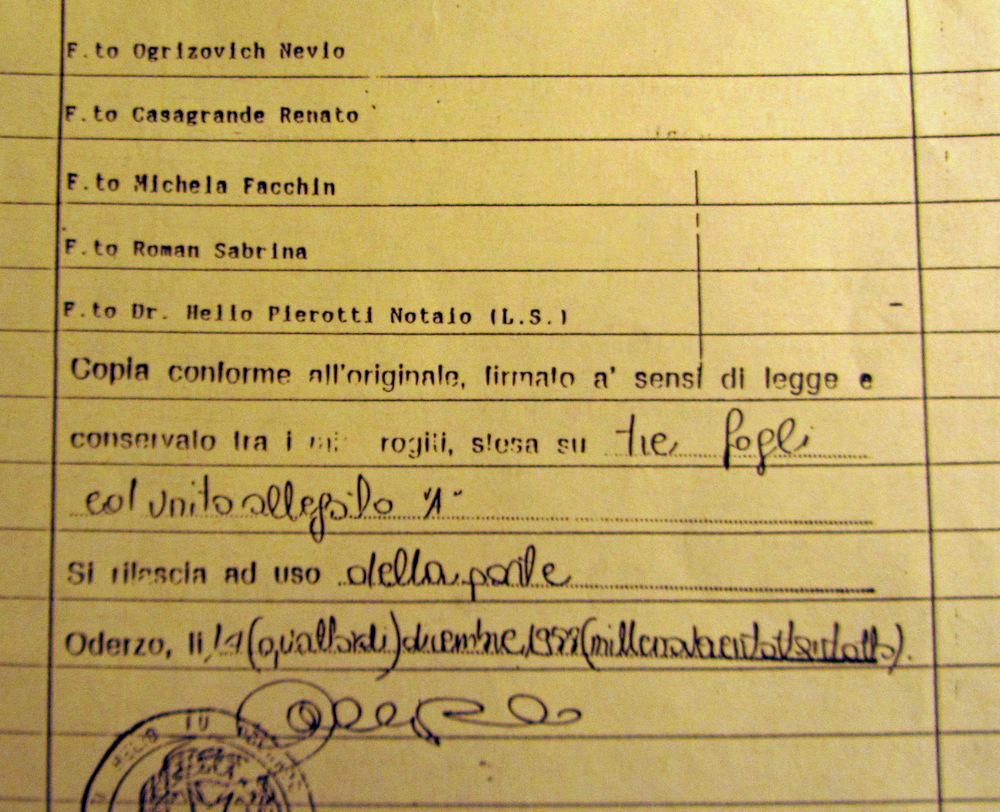 F.to Ogrizovich Nevio
F.to Casagrande Renato
F.to Michela Facchin
F.to Roman Sabrina
F.to Dr. Helio Pierotti Notaio (L.S.)
Copia conforme all'originale, firmato a' sensi di legge e
conservato tra i miei rogiti, stesa su tre fogli
col unito allegato "A"
Si rilascia ad uso della parte
Oderzo, li 14 (quattordici) dicembre 1988 (millenovecentottantotto).
HELIO